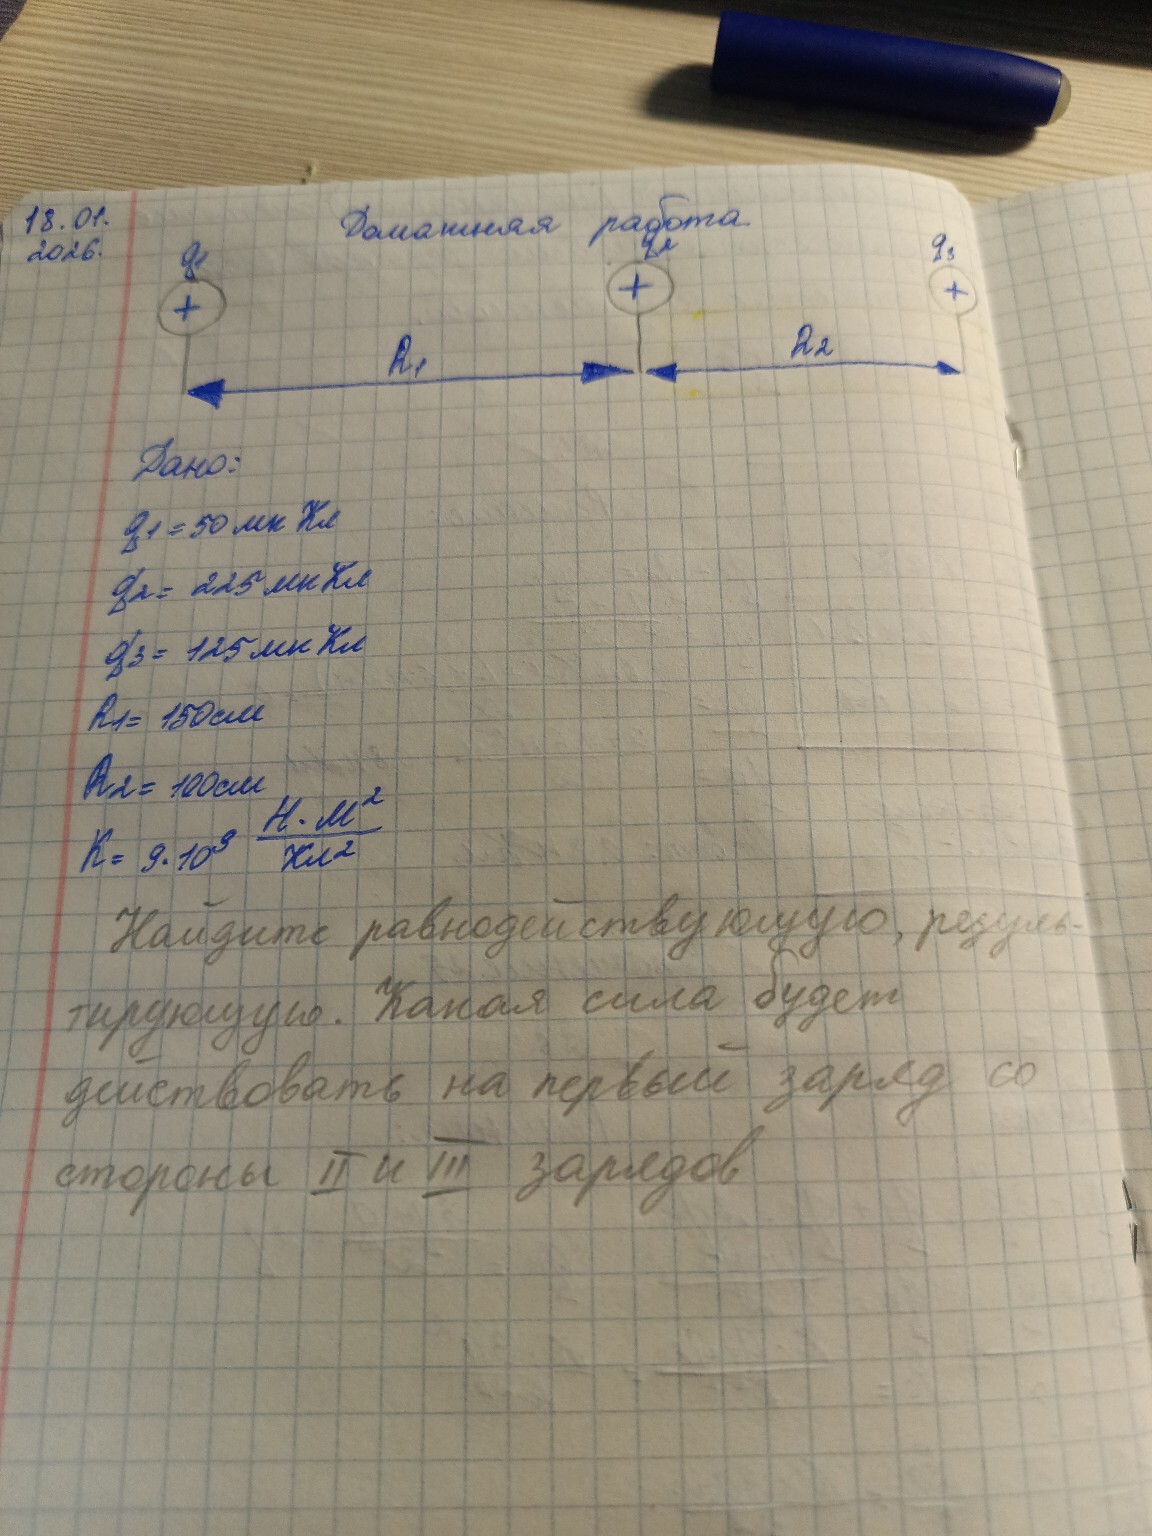 18.01.
2026.
Домашняя работа.
q1
q2
q3
+
+
+
R1
R2
Дано:
q1 = 50 мк Кл
q2 = 225 мк Кл
q3 = 125 мк Кл
R1 = 150 см
R2 = 100 см
K = 9·10⁹ Н·м²/Кл²
Найдите равнодействующую, резуль-
тирующую. Какая сила будет
действовать на первый заряд со
стороны II и III зарядов